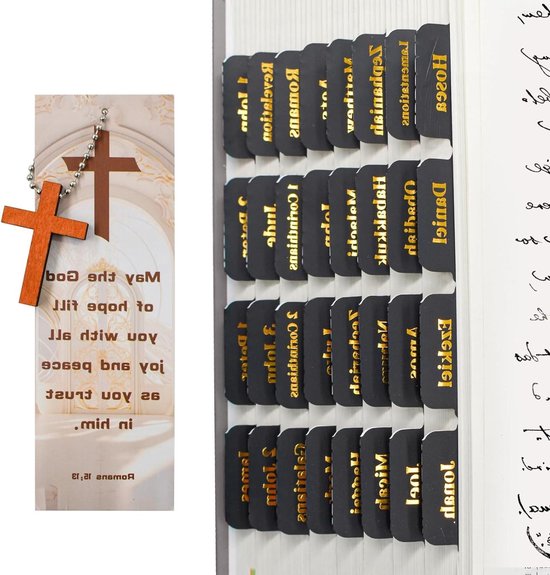 May the God
of hope fill
you with all
joy and peace
as you trust
in him.
Romans 15:13
1 John
Revelation
Romans
Acts
Matthew
Zephaniah
Lamentations
Hosea
2 Peter
Jude
1 Corinthians
John
Malachi
Habakkuk
Obadiah
Daniel
1 Peter
3 John
2 Corinthians
Luke
Zechariah
Nahum
Amos
Ezekiel
James
2 John
Galatians
Mark
Haggai
Micah
Joel
Jonah